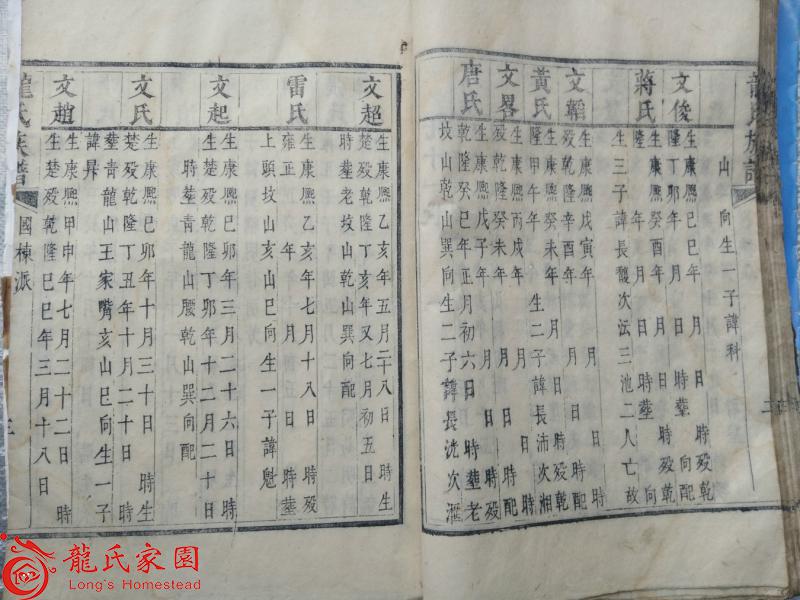 龍氏族譜
山 向生一子諱科
文俊
生康熙己巳年 月 日 時歿乾
隆丁卯年 月 日 時塟 向配
蔣氏
生康熙癸酉年 月 日 時歿乾
隆 年 月 日 時塟 向
生三子諱長 次沄三池二人亡故
文韜
生康熙戊寅年 月 日 時
歿乾隆辛酉年 月 日 時配
黃氏
生康熙癸未年 月 日 時歿乾
隆甲午年 生二子諱長沛次湘
文畧
生康熙丙戌年 月 日 時
歿乾隆癸未年 月 日 時配
唐氏
生康熙戊子年 月 日 時歿
乾隆癸巳年正月初六日 時塟老
坟山乾山巽向生二子諱長洸次滙
文超
生康熙乙亥年五月二十八日 時生
楚歿乾隆丁亥年又七月初五日
時塟老坟山乾山巽向配
雷氏
生康熙乙亥年七月十八日 時歿
雍正 年 月 日 時塟
上頭坟山亥山巳向生一子諱魁
文起
生康熙己卯年三月二十六日 時
生楚歿乾隆丁卯年十二月二十日
時塟青龍山腰乾山巽向配
文氏
生康熙己卯年十月三十日 時生
楚歿乾隆丁丑年十月二十日 時
塟青龍山王家嘴亥山巳向生一子
諱昇
文趙
生康熙甲申年七月二十二日 時
生楚歿乾隆己巳年三月十八日
龍氏族譜
國棟派
三
龍氏家園
Long's Homestead